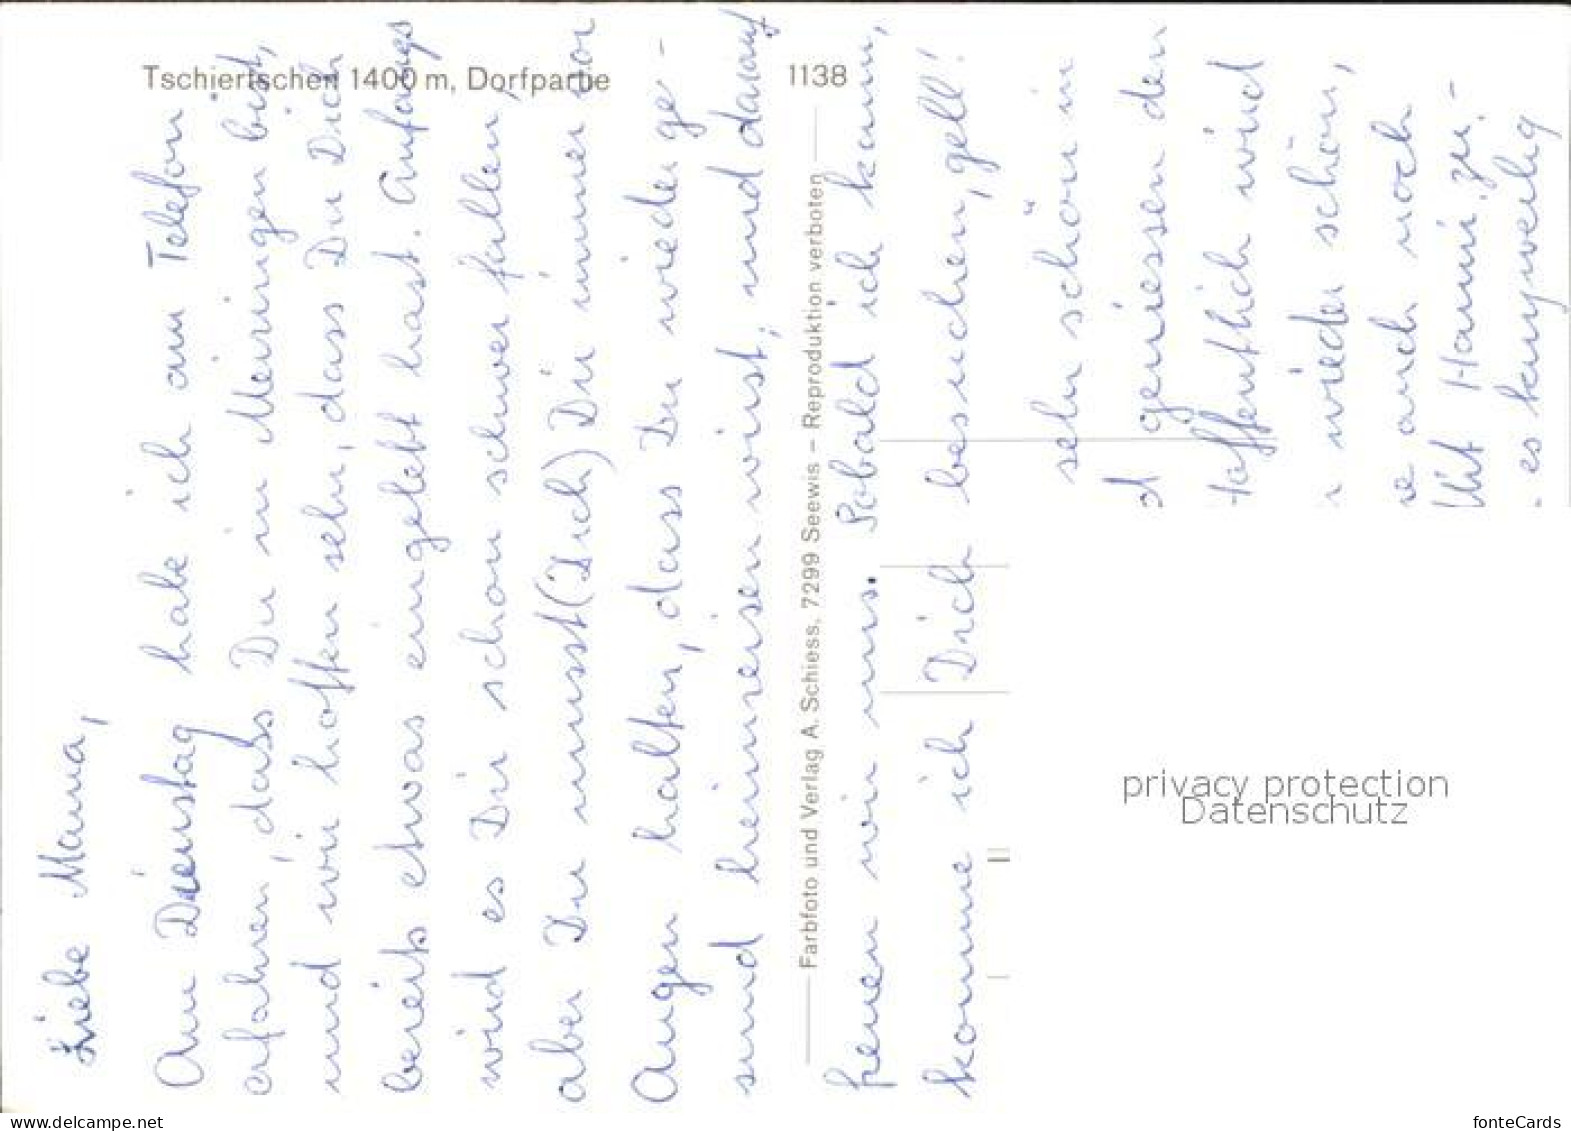 Tschiertschen 1400 m, Dorfpartie
1138
Farbfoto und Verlag A. Schiess, 7299 Seewis – Reproduktion verboten
Liebe Mama,
Am Dienstag habe ich am Telefon
erfahren, dass Du in Meiringen bist,
und wir hoffen sehr, dass Du Dich
bereits etwas eingelebt hast. Anfangs
wird es Dir schon schwer fallen,
aber Du musst (Dich) Dir immer vor
Augen halten, dass Du wieder ge-
sund heimreisen wirst, und darauf
freuen wir uns. Sobald ich kann,
komme ich Dich besuchen, gell!
sehr schön in
d geniessen den
Hoffentlich wird
r wieder schön,
e auch noch
Mit Hanni, zu.-
es kurzweilig
privacy protection
Datenschutz
www.delcampe.net
fonteCards